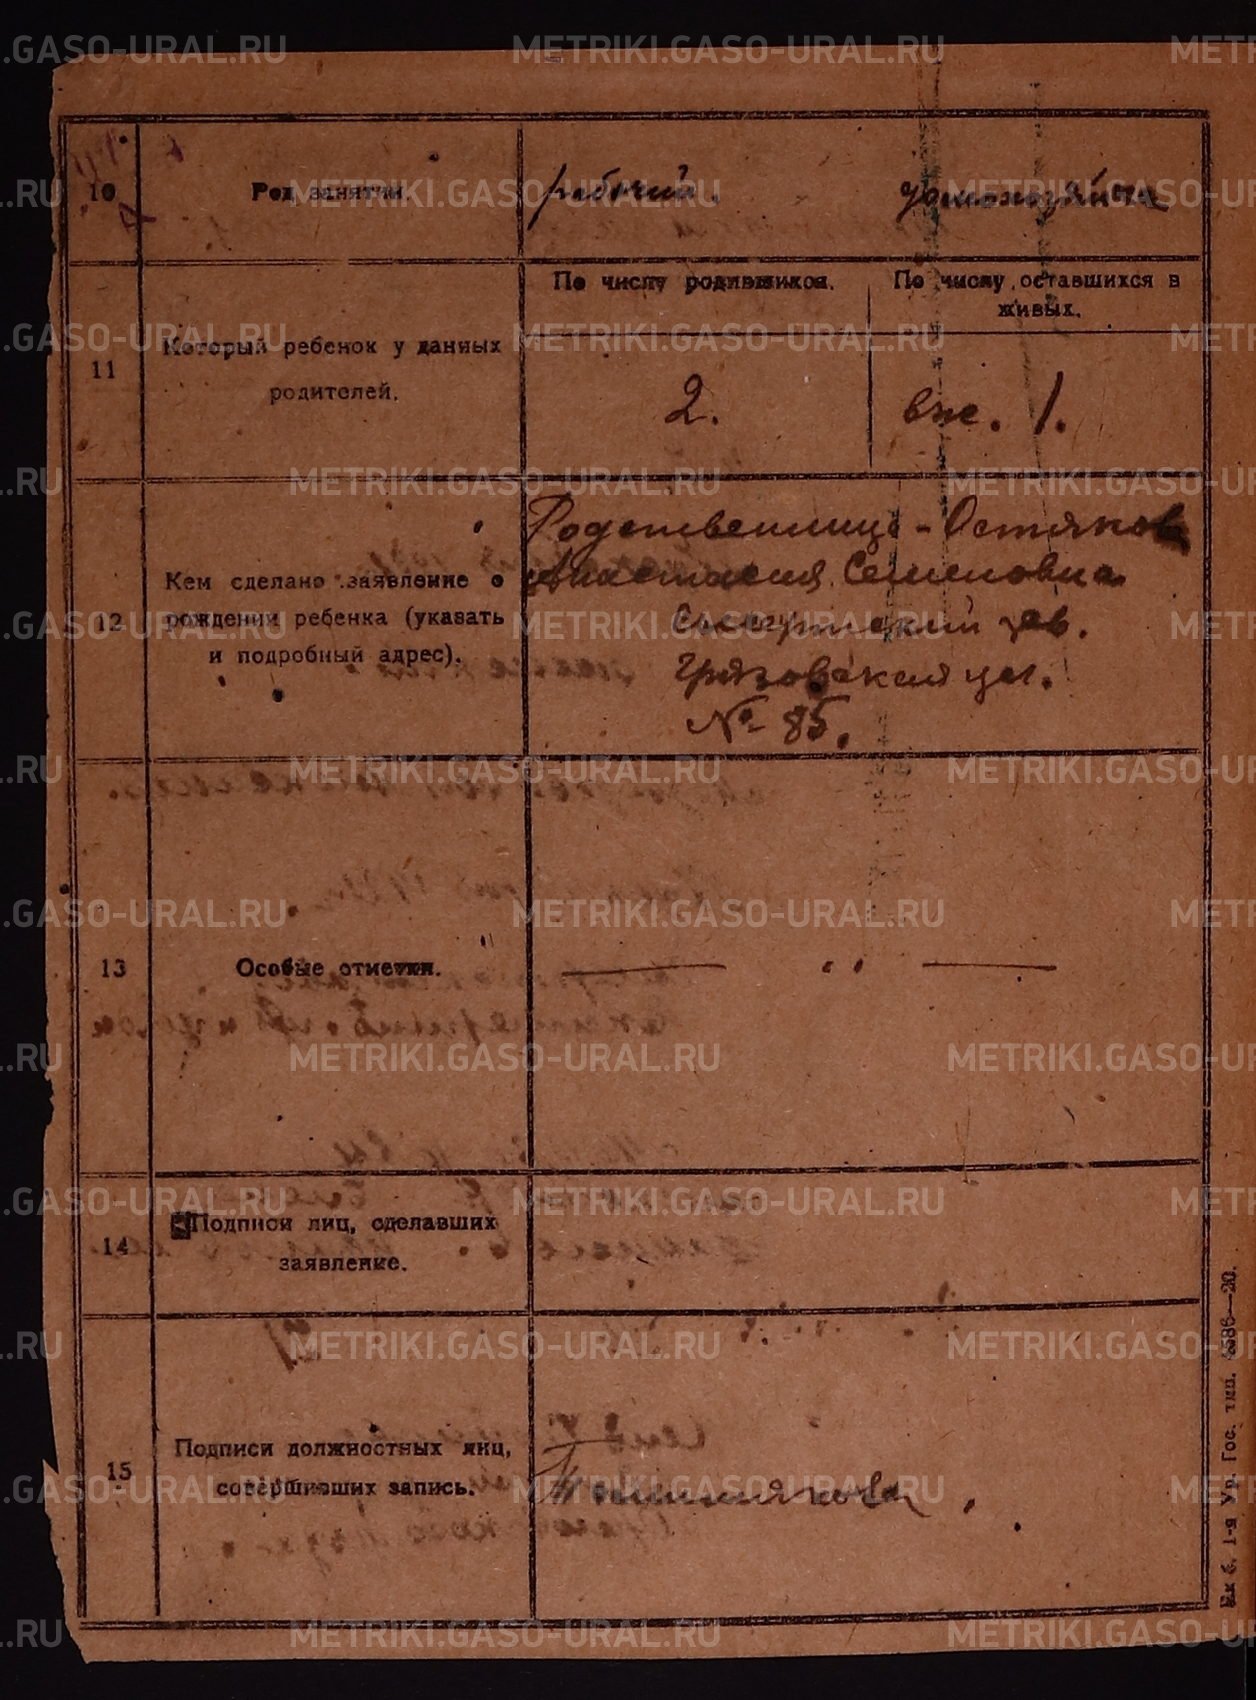 10
Род занятий.
рабочий.
домохозяйка
11
Который ребенок у данных
родителей.
По числу родившихся.
По числу оставшихся в
живых.
2.
вже. 1.
12
Кем сделано заявление о
рождении ребенка (указать
и подробный адрес).
Родственница - Остякова
Анастасия Семеновна
Сысертский зав.
Грязовская ул.
№ 85.
13
Особые отметки.
14
Подписи лиц, сделавших
заявление.
15
Подписи должностных лиц,
совершивших запись.
Ур. Гос. тип. 4586—20.
METRIKI.GASO-URAL.RU